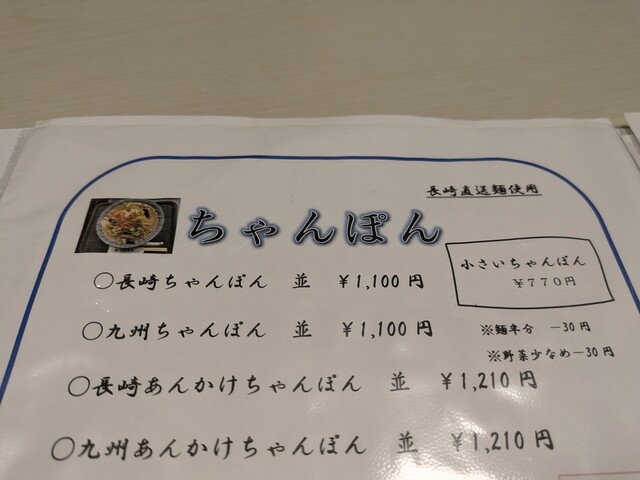 長崎直送麺使用
ちゃんぽん
小さいちゃんぽん
￥770円
○長崎ちゃんぽん 並 ￥1,100円
○九州ちゃんぽん 並 ￥1,100円
※麺半分 －30円
※野菜少なめ－30円
○長崎あんかけちゃんぽん 並 ￥1,210円
○九州あんかけちゃんぽん 並 ￥1,210円